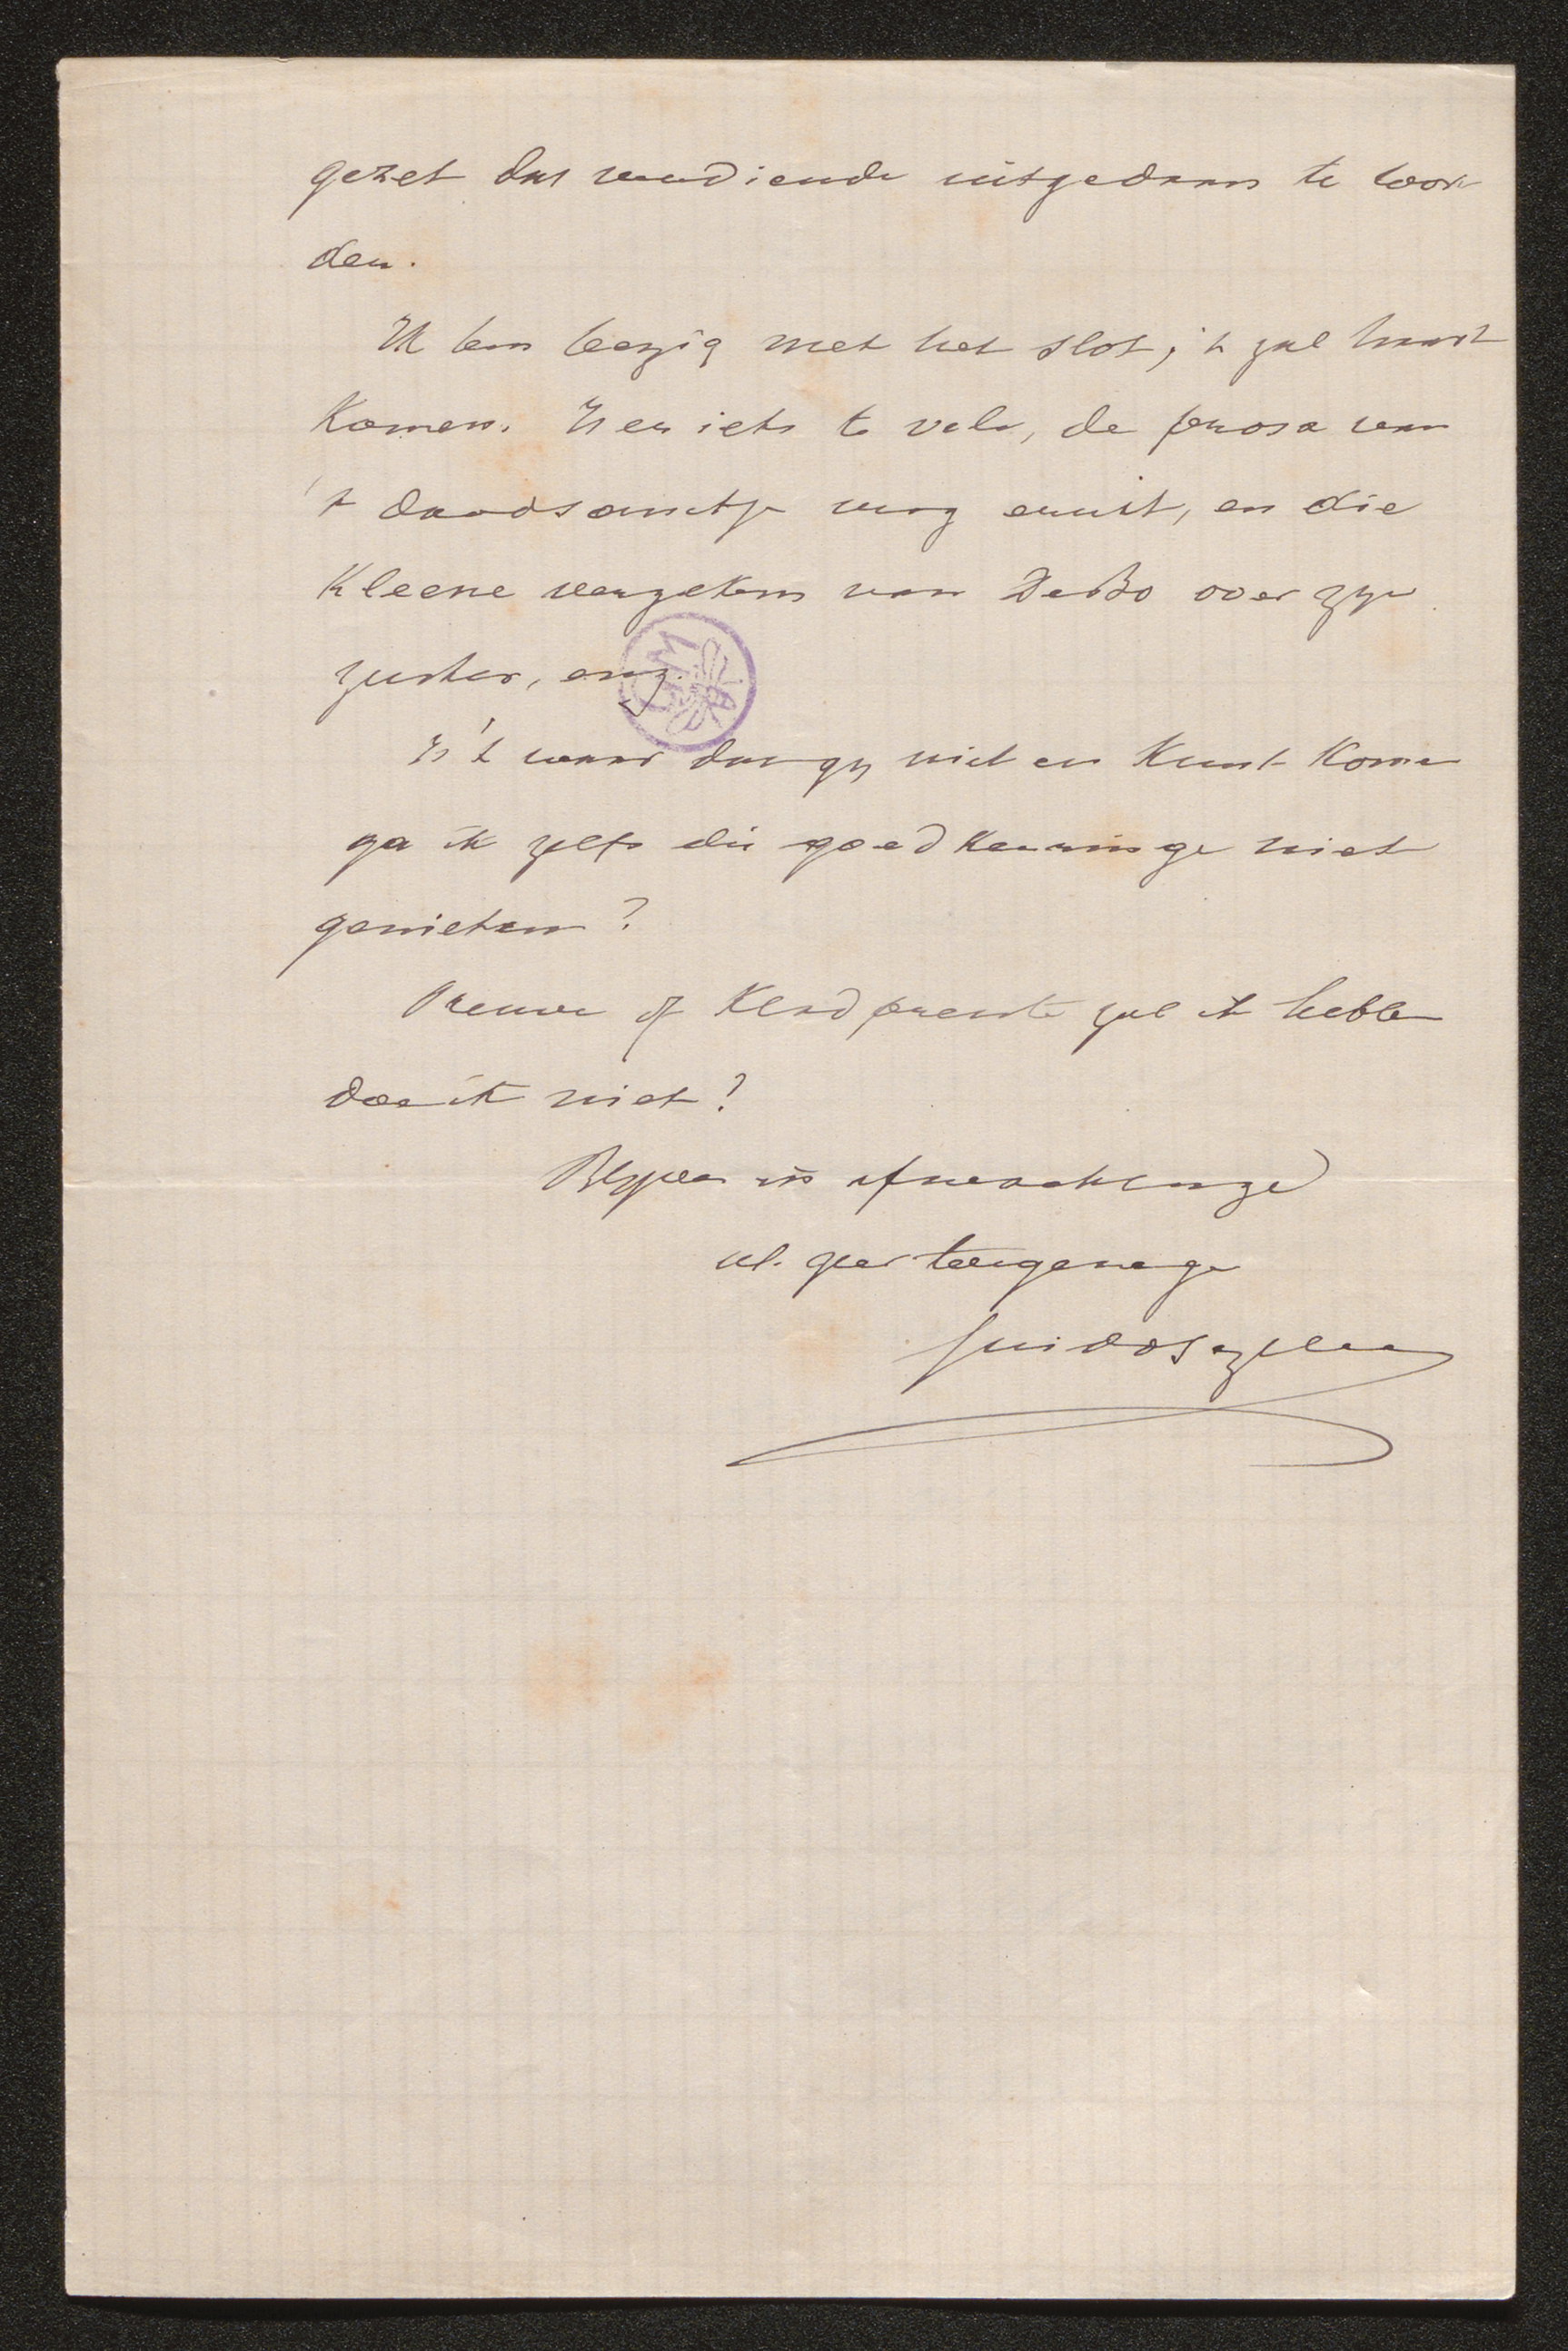 gezet dat verdiende uitgedaan te wor
den.
Ik ben bezig met het slot; 't zal haast
komen. Is er iets te vele, de prosa van
't doodsantje mag eruit, en die
kleene vergeten van DeBo over zyn
zuster, enz.
Is 't waar dat gy niet en kunt komen
ga ik zelfs die goedkeuringe niet
genieten?
Preuve of Kladprente zal ik hebben
doe ik niet?
Blyve in afwachtinge
ul. zeer toegenegen
Guido Gezelle